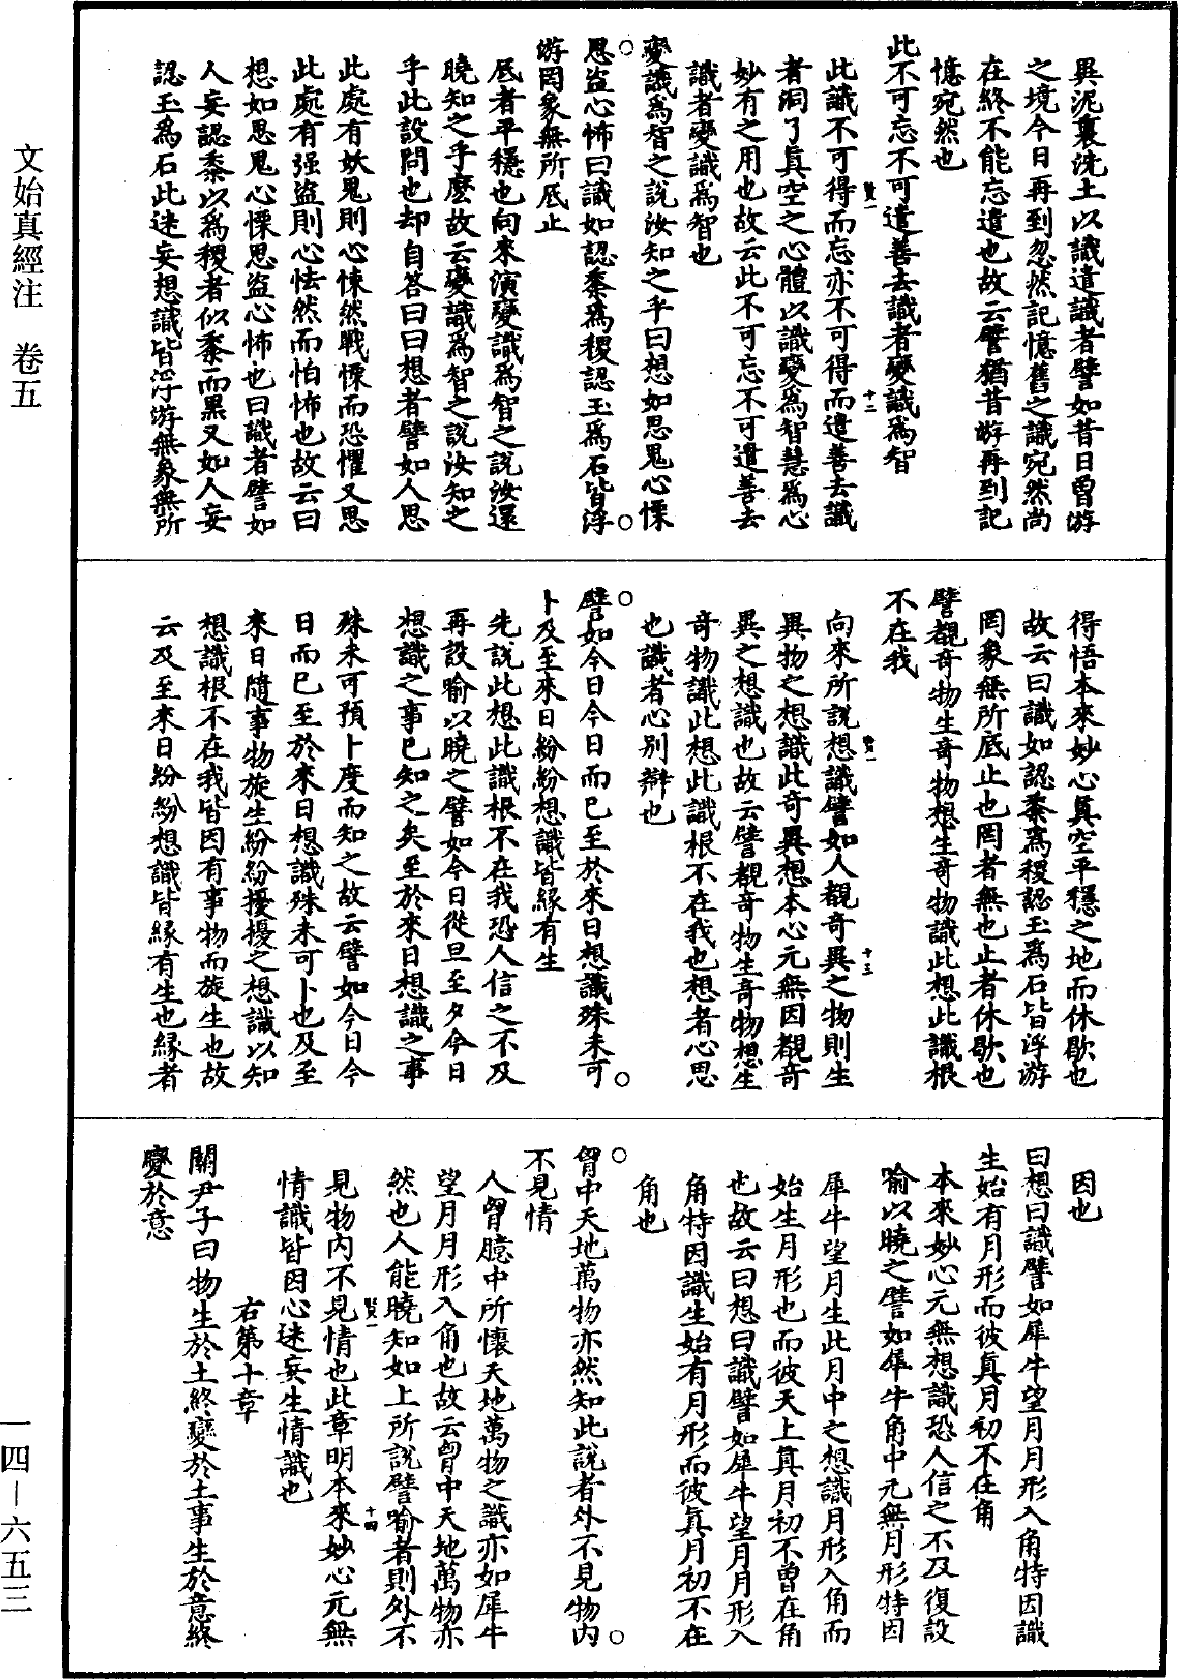 異泥裏洗土以識遣識者譬如昔日曾游
之境今日再到忽然記憶舊之識宛然尚
在終不能忘遣也故云譬猶昔游再到記
憶宛然也
此不可忘不可遣善去識者變識爲智
此識不可得而忘亦不可得而遣善去識
者洞了眞空之心體以識變爲智慧爲心
妙有之用也故云此不可忘不可遣善去
識者變識爲智也
變識爲智之說汝知之乎曰想如思鬼心慄
思盜心怖曰識如認黍爲稷認玉爲石皆浮
游罔象無所底止
底者平穩也向來演變識爲智之說汝還
曉知之乎麽故云變識爲智之說汝知之
乎此設問也却自答曰曰想者譬如人思
此處有妖鬼則心悚然戰慄而恐懼又思
此處有强盜則心怯然而怕怖也故云曰
想如思鬼心慄思盜心怖也曰識者譬如
人妄認黍以爲稷者似黍而黑又如人妄
認玉爲石此迷妄想識皆浮游無象無所
得悟本來妙心眞空平穩之地而休歇也
故云曰識如認黍爲稷認玉爲石皆浮游
罔象無所底止也罔者無也止者休歇也
譬覩奇物生奇物想生奇物識此想此識根
不在我
向來所說想識譬如人覩奇異之物則生
異物之想識此奇異想本心元無因覩奇
異之想識也故云譬覩奇物生奇物想生
奇物識此想此識根不在我也想者心思
也識者心別辯也
譬如今日今日而已至於來日想識殊未可
卜及至來日紛紛想識皆緣有生
先說此想此識根不在我恐人信之不及
再設喻以曉之譬如今日從旦至夕今日
想識之事已知之矣至於來日想識之事
殊未可預卜度而知之故云譬如今日今
日而已至於來日想識殊未可卜也及至
來日隨事物旋生紛紛擾擾之想識以知
想識根不在我皆因有事物而旋生也故
云及至來日紛紛想識皆緣有生也緣者
因也
曰想曰識譬如犀牛望月月形入角特因識
生始有月形而彼眞月初不在角
本來妙心元無想識恐人信之不及復設
喻以曉之譬如犀牛角中元無月形特因
犀牛望月生此月中之想識月形入角而
始生月形也而彼天上眞月初不曾在角
也故云曰想曰識譬如犀牛望月月形入
角特因識生始有月形而彼眞月初不在
角也
胷中天地萬物亦然知此說者外不見物內
不見情
人胷臆中所懷天地萬物之識亦如犀牛
望月月形入角也故云胷中天地萬物亦
然也人能曉知如上所說譬喻者則外不
見物內不見情也此章明本來妙心元無
情識皆因心迷妄生情識也
右第十章
關尹子曰物生於土終變於土事生於意終
變於意
文始真經注　卷五
一四—六五三